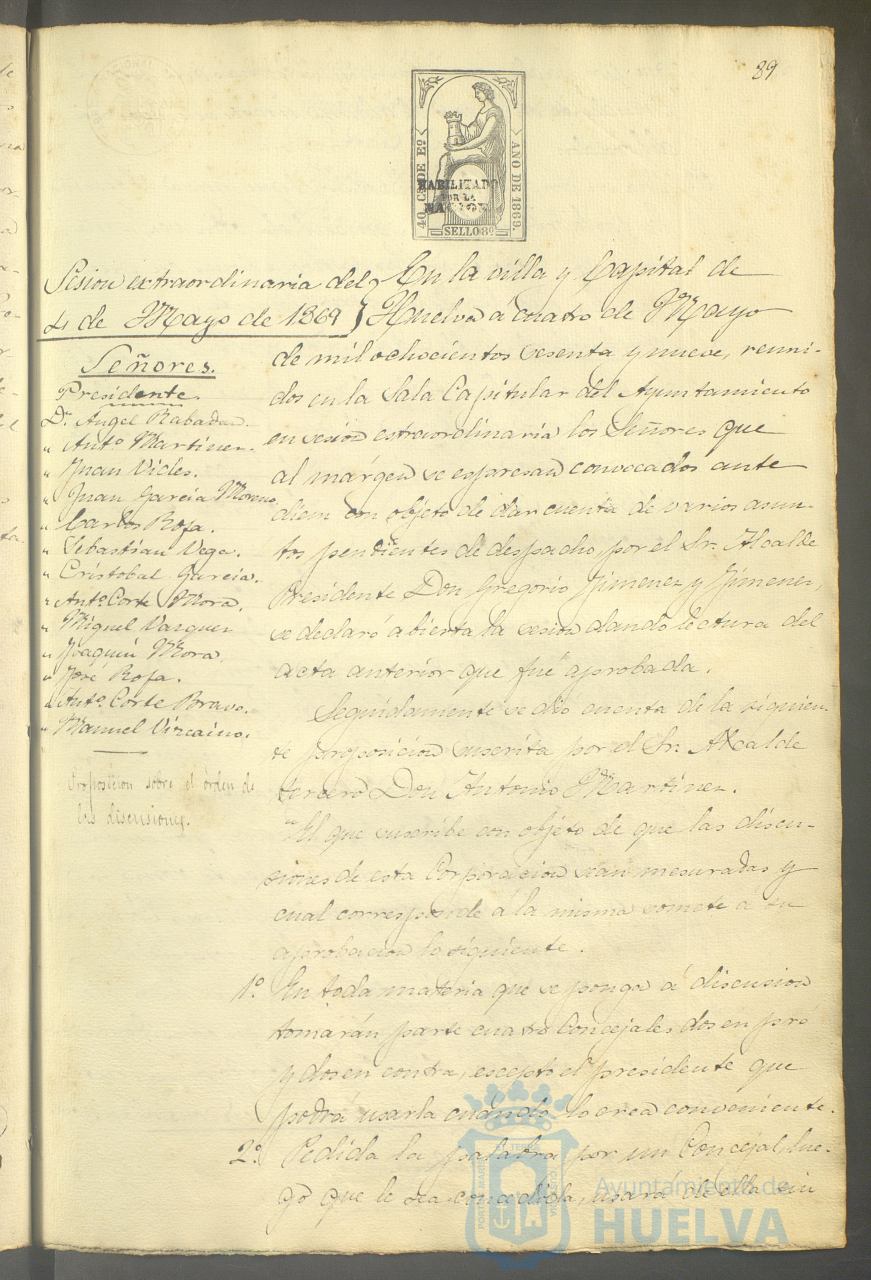 89
40 CS. DE Eº
AÑO DE 1869.
HABILITADO
POR LA
NACION
SELLO 8º
Sesion extraordinaria del
4 de Mayo de 1869
Señores.
Presidente.
Dn. Angel Rabadan.
" Antº Martinez.
" Juan Vides.
" Juan Garcia Moreno.
" Carlos Rofa.
" Sebastian Vega.
" Cristobal Garcia.
" Antº Corte Mora.
" Miguel Vazquez
" Joaquin Mora.
" José Rofa.
" Antº Corte Bravo.
" Manuel Vizcaino.
Proposicion sobre el órden de
las discusiones.
En la villa y Capital de
Huelva á cuatro de Mayo
de mil ochocientos sesenta y nueve, reuni-
dos en la Sala Capitular del Ayuntamiento
en sesion estraordinaria los Señores que
al márgen se espresan convocados ante
diem con objeto de dar cuenta de varios asun-
tos pendientes de despacho, por el Sr. Alcalde
Presidente Don Gregorio Jimenez y Jimenez,
se declaró abierta la sesion dando lectura del
acta anterior que fué aprobada.
Seguidamente se dio cuenta de la siguien-
te proposicion suscrita por el Sr. Alcalde
tercero Don Antonio Martinez.
"El que suscribe con objeto de que las discu-
siones de esta Corporacion sean mesuradas y
cual corresponde á la misma somete a su
aprobacion lo siguiente.
1º. En toda materia que se ponga á discusion
tomarán parte cuatro Concejales dos en pró
y dos en contra, escepto el presidente que
podrá usarla cuándo lo crea conveniente.
2º. Pedida la palabra por un Concejal, lue-
gó que le sea concedida, usará de ella sin
Ayuntamiento de
HUELVA